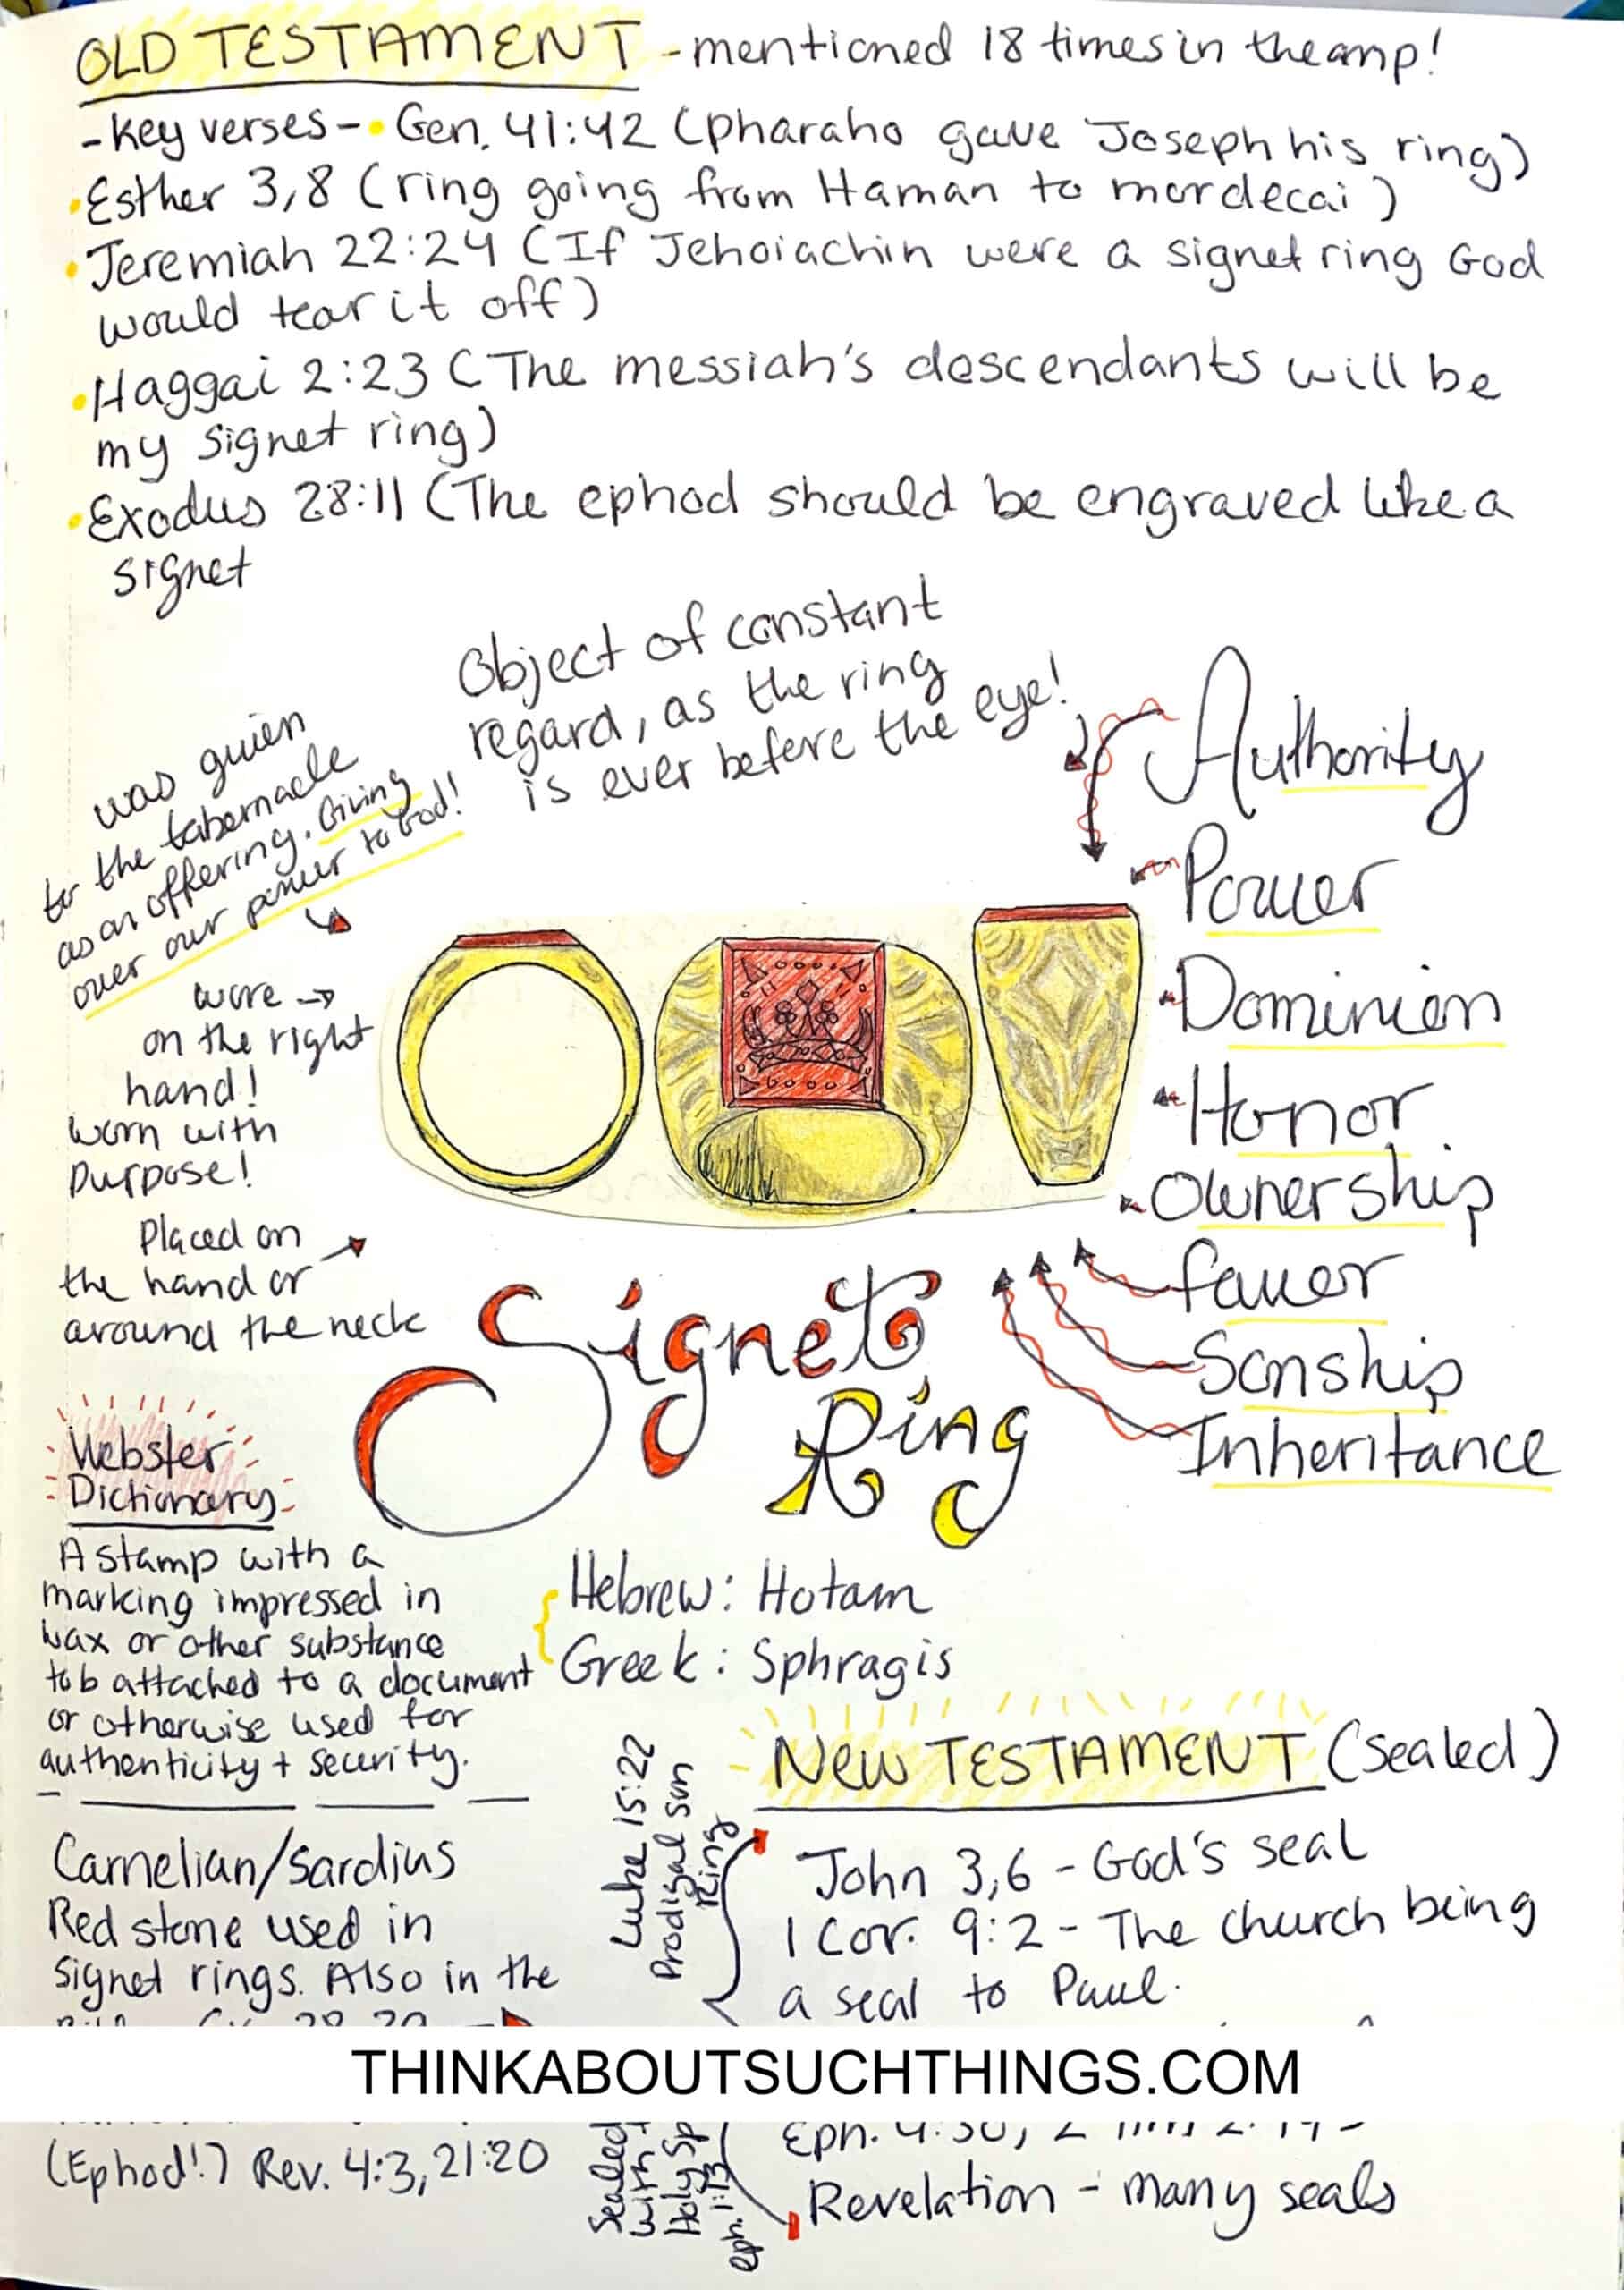 OLD TESTAMENT - mentioned 18 times in the amp!
- Key verses - • Gen. 41:42 (Pharaho gave Joseph his ring)
• Esther 3,8 (ring going from Haman to mordecai)
• Jeremiah 22:24 (If Jehoiachin were a signet ring God
would tear it off)
• Haggai 2:23 (The messiah's descendants will be
my signet ring)
• Exodus 28:11 (The ephod should be engraved like a
signet
Object of constant
regard, as the ring
is ever before the eye!
was given
to the tabernacle
as an offering. Giving
over our power to God!
wore →
on the right
hand!
worn with
Purpose!
Placed on
the hand or
around the neck
Authority
Power
Dominion
Honor
Ownership
favor
Sonship
Inheritance
Signet
Ring
Webster
Dictionary
A stamp with a
marking impressed in
wax or other substance
to b attached to a document
or otherwise used for
authenticity + security.
Hebrew: Hotam
Greek: Sphragis
Carnelian/Sardius
Red stone used in
signet rings. Also in the
(Ephod!) Rev. 4:3, 21:20
NEW TESTAMENT (Sealed)
Luke 15:22
Prodigal son
Ring
John 3,6 - God's seal
1 Cor. 9:2 - The church being
a seal to Paul.
THINKABOUTSUCHTHINGS.COM
Eph. 4:30,
Revelation - many seals
Sealed
with
Holy Sp
eph. 1:13